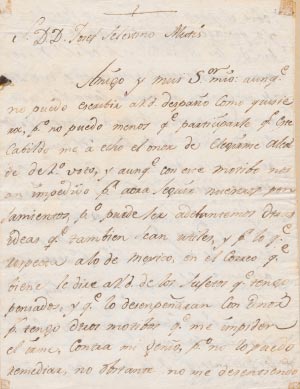 S.r D.D. Josef Celestino Mutis
Amigo y mui S.or mio: aunq.e
no puedo escribir a Vd. despacio como quisie
ra, p.o no puedo menos q.e participarle q.e este
Cabildo me a echo el onor de elegirme alcal
de de 2.o voto, y aunq.e con este motibo me
an impedido p.a atra seguir nuestros pen
samientos,
ideas q.e tambien sean utiles, y p.r lo q.e
respecta a lo de Mexico, en el correo q.e
viene le dire a Vd. de los sujetos q.e tengo
pensados, y q.e lo desempeñaran con onor
p.s tengo otros motibos q.e me impiden
el irme, contra mi genio, p.o no lo puedo
remediar, no obstante no me desentiendo